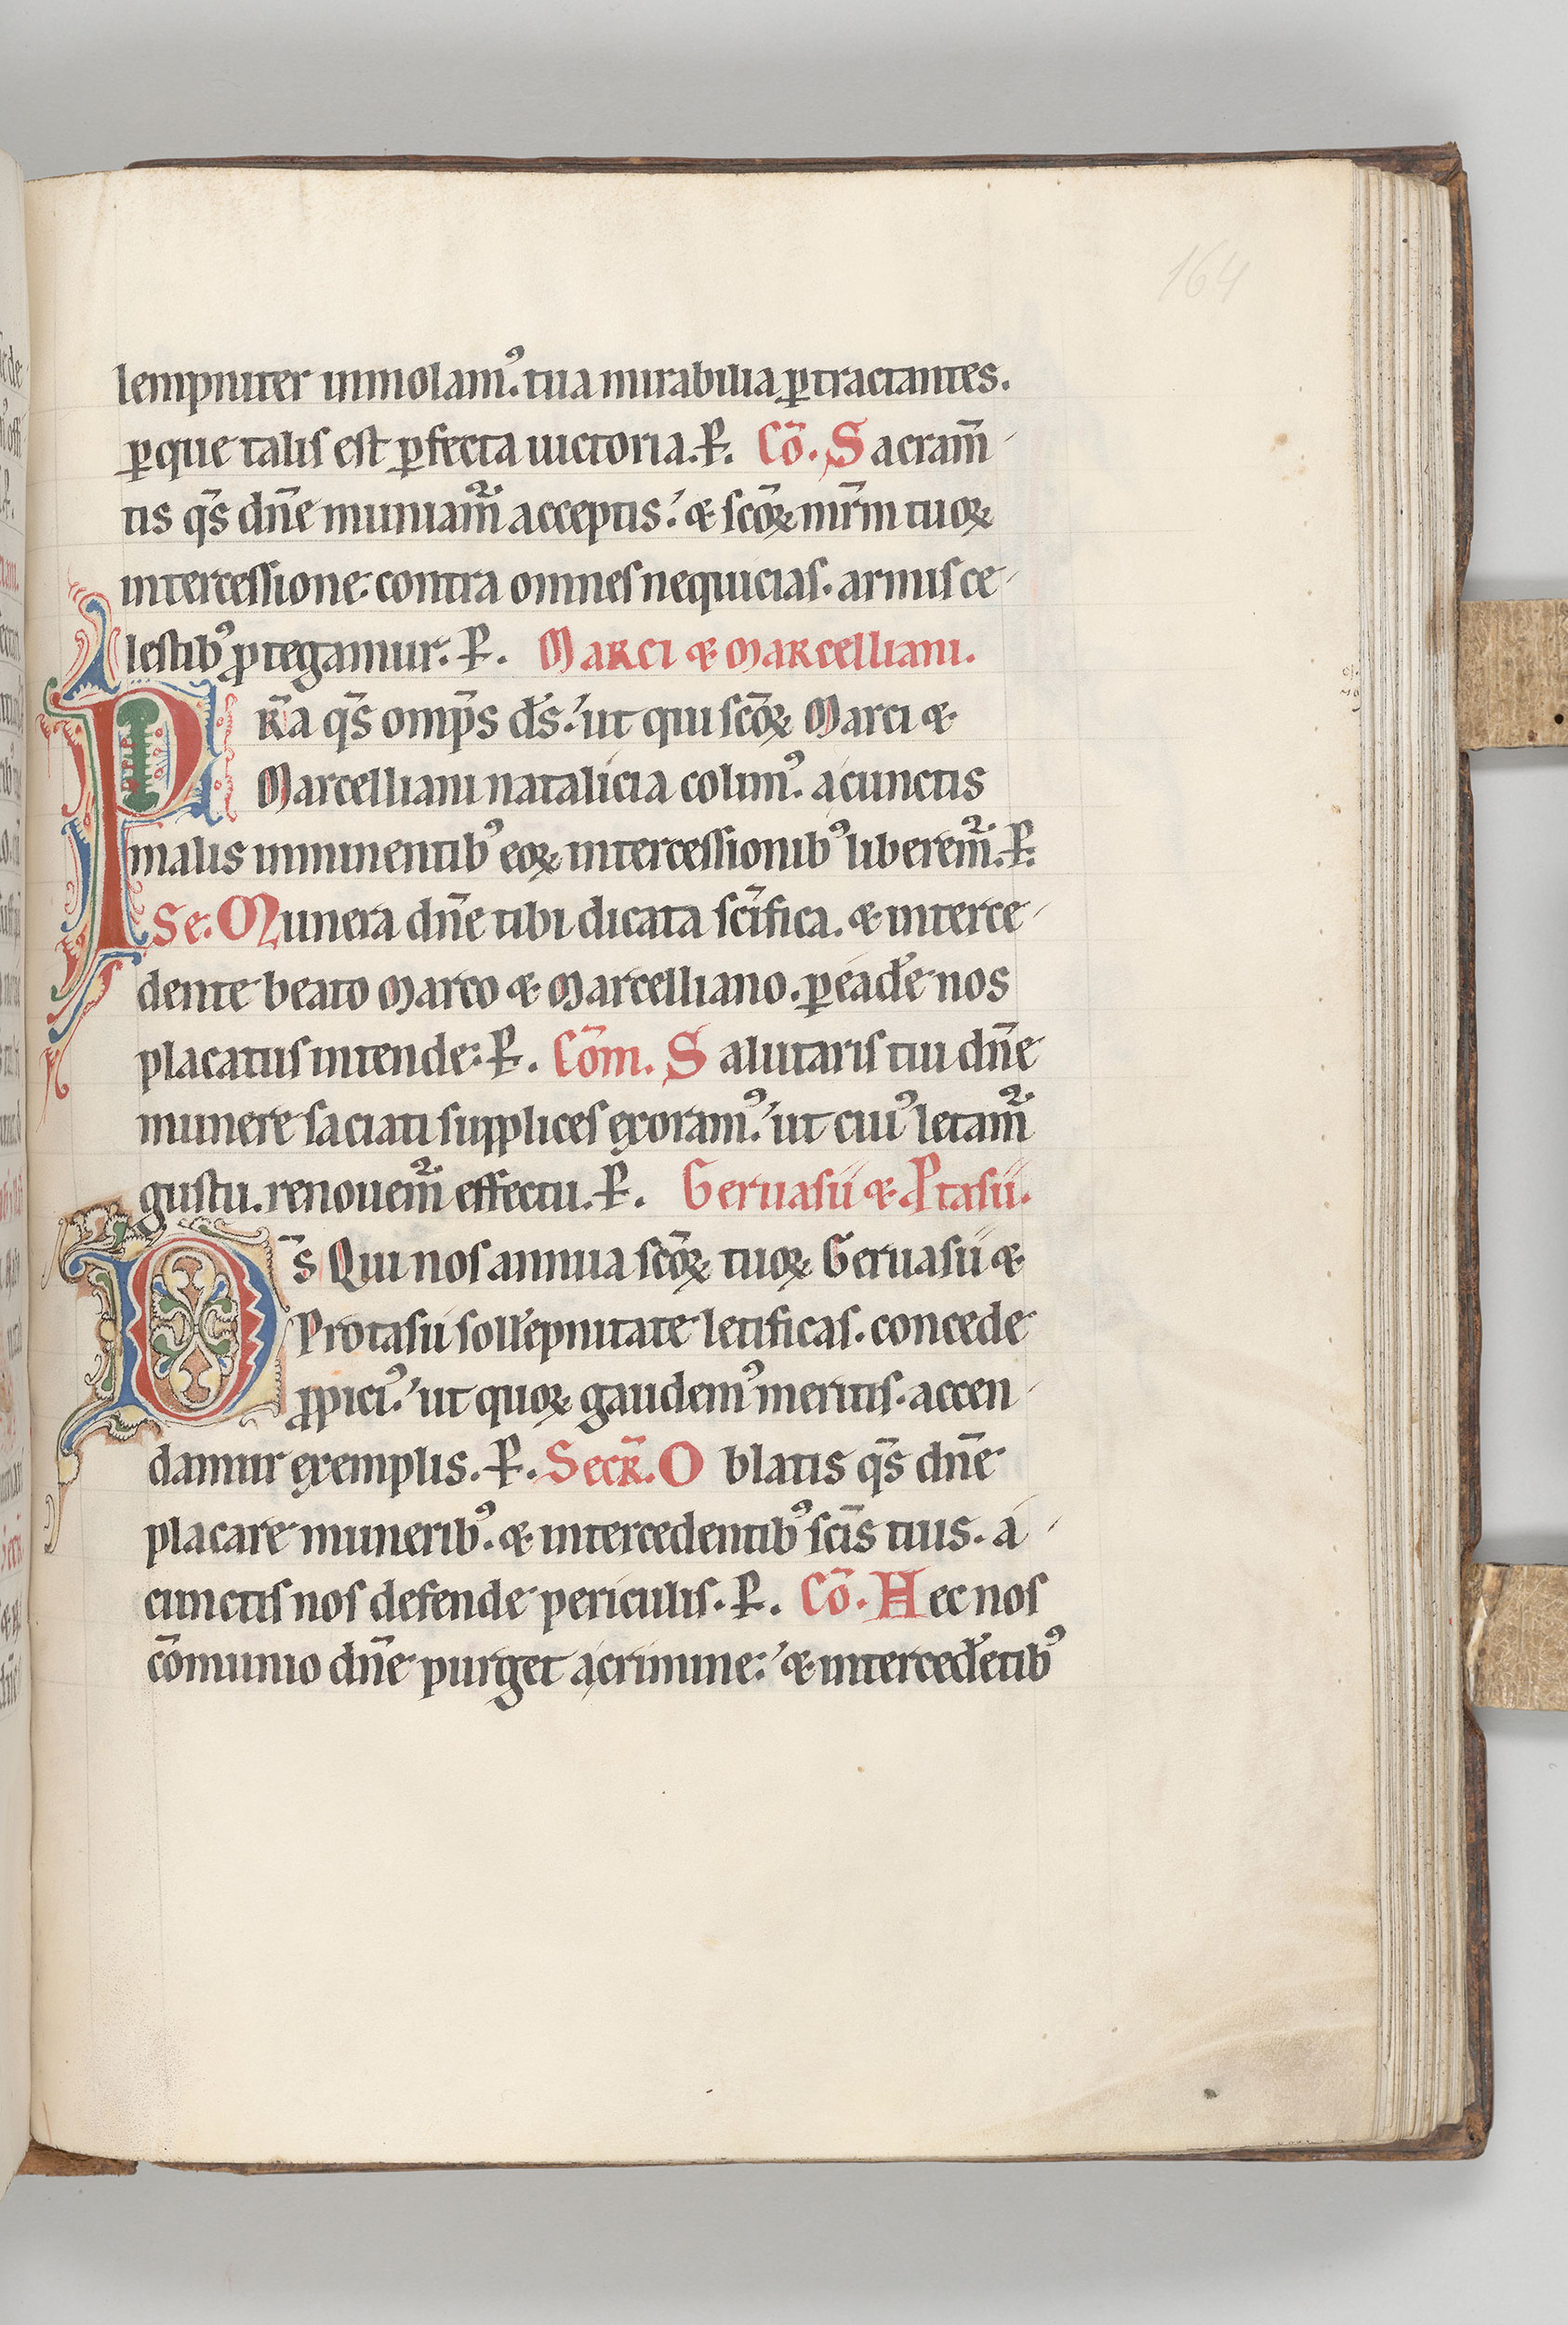 164
lempniter inmolam᾿. tua mirabilia ꝑtractantes.
ꝑque talis est ꝑfecta uictoria. P̶. Cō. Sacram̄
tis q̄s dn̄e muniam̄ᷣ acceptis. & scōꝝ mr̄m tuoꝝ
intercessione. contra omnes nequicias. armis ce
lestib᾿ ꝓtegamur. P̶. Marci & Marcelliani.
PR̄a q̄s omp̄s ds̄. ut qui scōꝝ Marci &
Marcelliani natalicia colim᾿. a cunctis
malis imminentib᾿ eoꝝ intercessionib᾿ liberem̄ᷣ. P̶.
Se: Munera dn̄e tibi dicata sc̄ifica. & interce
dente beato Marco & Marcelliano. ꝑ eadē nos
placatus intende: P̶. Cōm. Salutaris tui dn̄e
munere saciati supplices exoram᾿. ut cui᾿ letam̄ᷣ
gustu. renouem̄ᷣ effectu. P̶. Geruasii & Ꝓtasii.
Ds̄ Qui nos annua scōꝝ tuoꝝ Geruasii &
Protasii sollēpnitate letificas. concede
ꝓpici᾿. ut quoꝝ gaudem᾿ meritis. accen
damur exemplis. P̶. Secr̄. Oblatis q̄s dn̄e
placare munerib᾿. & intercedentib᾿ sc̄is tuis. a
cunctis nos defende periculis. P̶. Cō. Hec nos
cōmunio dn̄e purget a crimine: & intercedētib᾿